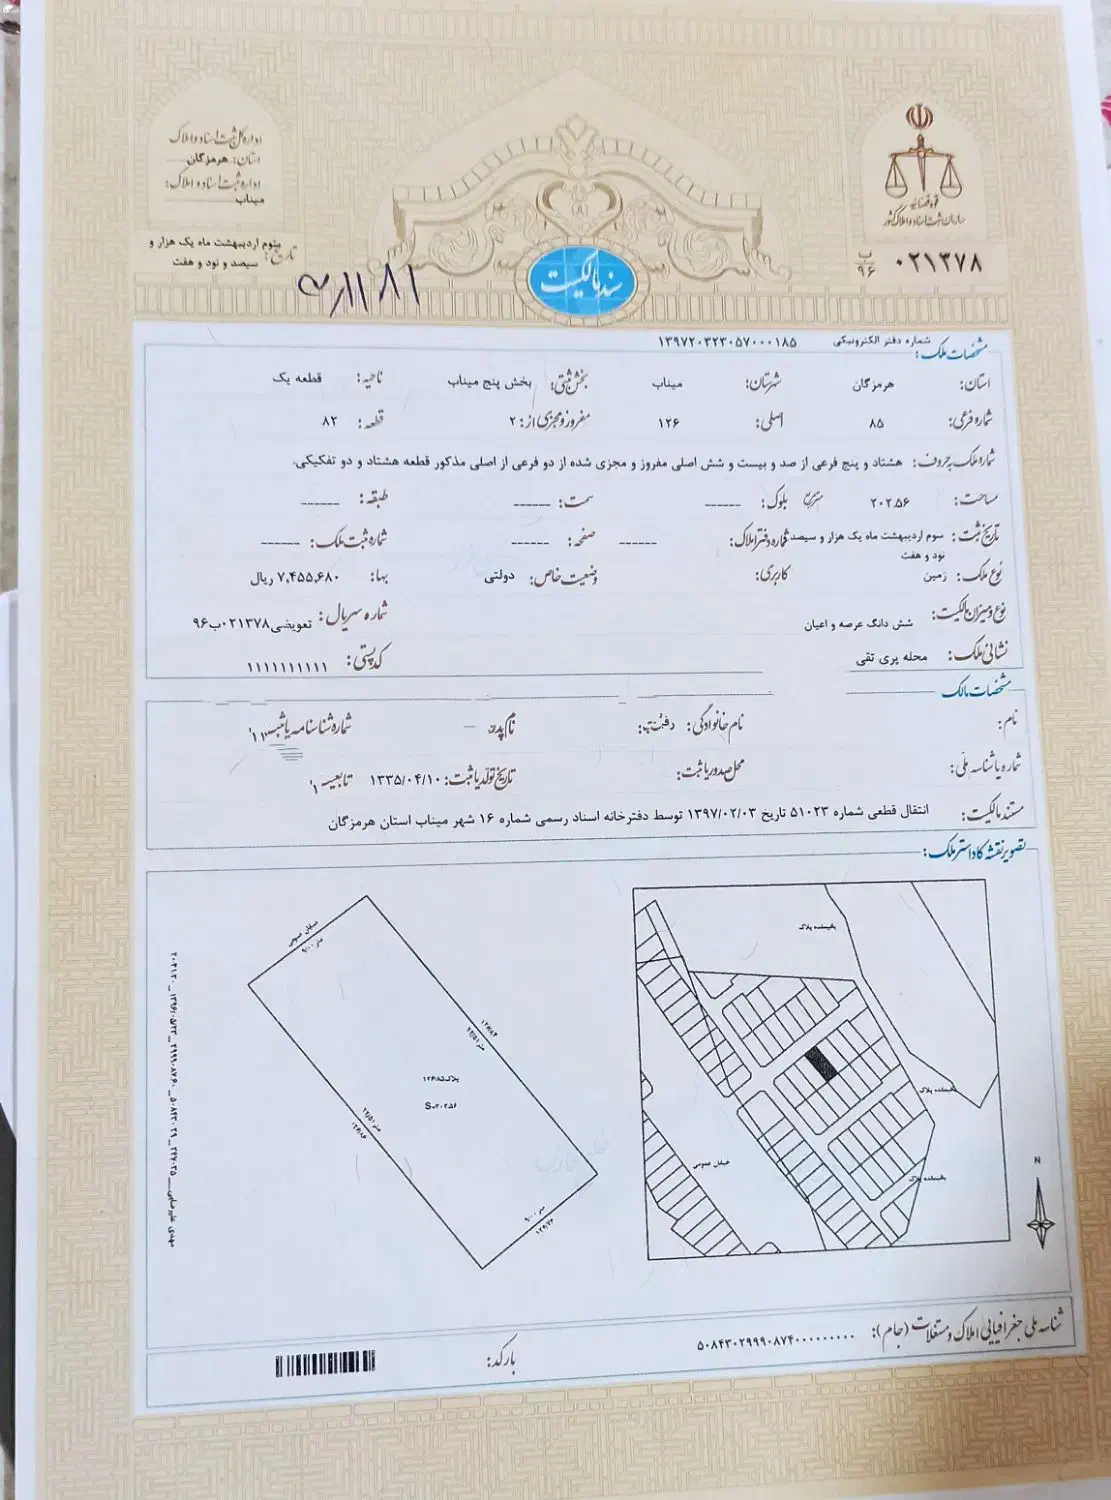 اداره کل ثبت اسناد و املاک
استان: هرمزگان
اداره ثبت اسناد و املاک:
میناب
تاریخ: سوم اردیبهشت ماه یک هزار و
سیصد و نود و هفت
قوه قضائیه
سازمان ثبت اسناد و املاک کشور
ب
۹۶ ۰۲۱۳۷۸
سند مالکیت
مشخصات ملک:
شماره دفتر الکترونیکی ۱۳۹۷۲۰۳۲۳۰۵۷۰۰۰۱۸۵
استان: هرمزگان شهرستان: میناب بخش ثبتی: بخش پنج میناب ناحیه: قطعه یک
شماره فرعی: ۸۵ اصلی: ۱۲۶ مفروز و مجزی از: ۲ قطعه: ۸۲
شماره ملک به حروف: هشتاد و پنج فرعی از صد و بیست و شش اصلی مفروز و مجزی شده از دو فرعی از اصلی مذکور قطعه هشتاد و دو تفکیکی.
مساحت: ۲۰۲.۵۶ بلوک: ------ سمت: ------ طبقه: ------
تاریخ ثبت: سوم اردیبهشت ماه یک هزار و سیصد شماره دفتر املاک: ------ صفحه: ------ شماره ثبت ملک: ------
نود و هفت
نوع ملک: زمین کاربری: وضعیت خاص: دولتی بها: ۷,۴۵۵,۶۸۰ ریال
نوع و میزان مالکیت: شش دانگ عرصه و اعیان شماره سریال: تعویضی۰۲۱۳۷۸ب۹۶
نشانی ملک: محله پری تقی کدپستی: ۱۱۱۱۱۱۱۱۱۱
مشخصات مالک
نام: نام خانوادگی: نام پدر شماره شناسنامه یا ثبت
شماره یا شناسه ملی: محل صدور یا ثبت: تاریخ تولد یا ثبت: ۱۳۳۵/۰۴/۱۰ تابعیت
مستند مالکیت: انتقال قطعی شماره ۵۱۰۲۳ تاریخ ۱۳۹۷/۰۲/۰۳ توسط دفترخانه اسناد رسمی شماره ۱۶ شهر میناب استان هرمزگان
تصویر نقشه کاداستر ملک:
خیابان عمومی
متر ۹.۰۰
۱۲۶/۸۴
متر ۲۲/۵۱
پلاک ۱۲۶/۸۵
S=۲۰۲.۵۶
متر ۲۲/۵۱
۱۲۶/۸۶
متر ۹.۰۰
باقیمانده پلاک
باقیمانده پلاک
باقیمانده پلاک
خیابان عمومی
N
شناسه ملی جغرافیایی املاک و مستغلات (جام): ۵۰۸۴۳۰۲۹۹۹۰۸۷۴۰۰۰۰۰۰۰۰۰۰
بارکد: